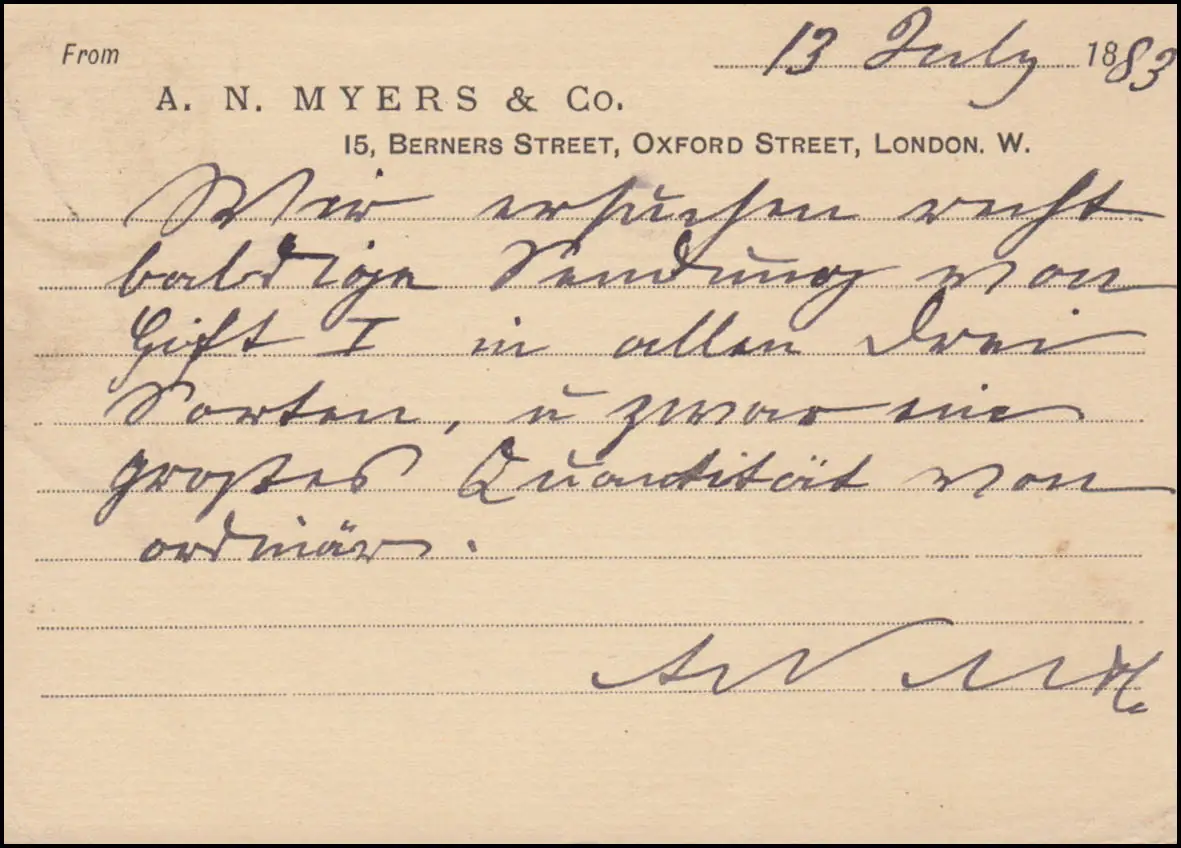 From 13 July 1883
A. N. MYERS & Co.
15, BERNERS STREET, OXFORD STREET, LONDON. W.
Wir ersuchen recht
baldige Sendung von
Gift I in allen drei
Sorten, u zwar ein
großes Quantität von
ordinär.
A N M & Co.